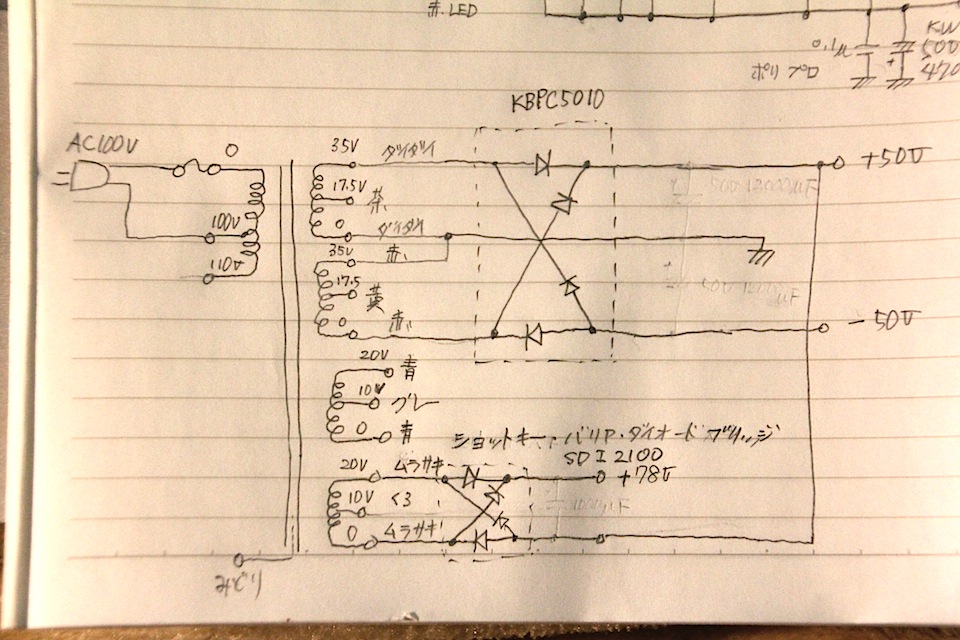 赤.LED
0.1μ
ポリプロ
KW
500
470
KBPC5010
AC100V
0
100V
110V
35V ダイダイ
17.5V 茶
0 ダイダイ
35V 赤
17.5 黄
0 赤
20V 青
10V グレー
0 青
+50V
-50V
ショットキーバリア・ダイオードブリッジ
SDI2100
+78V
20V ムラサキ
10V くろ
0 ムラサキ
みどり